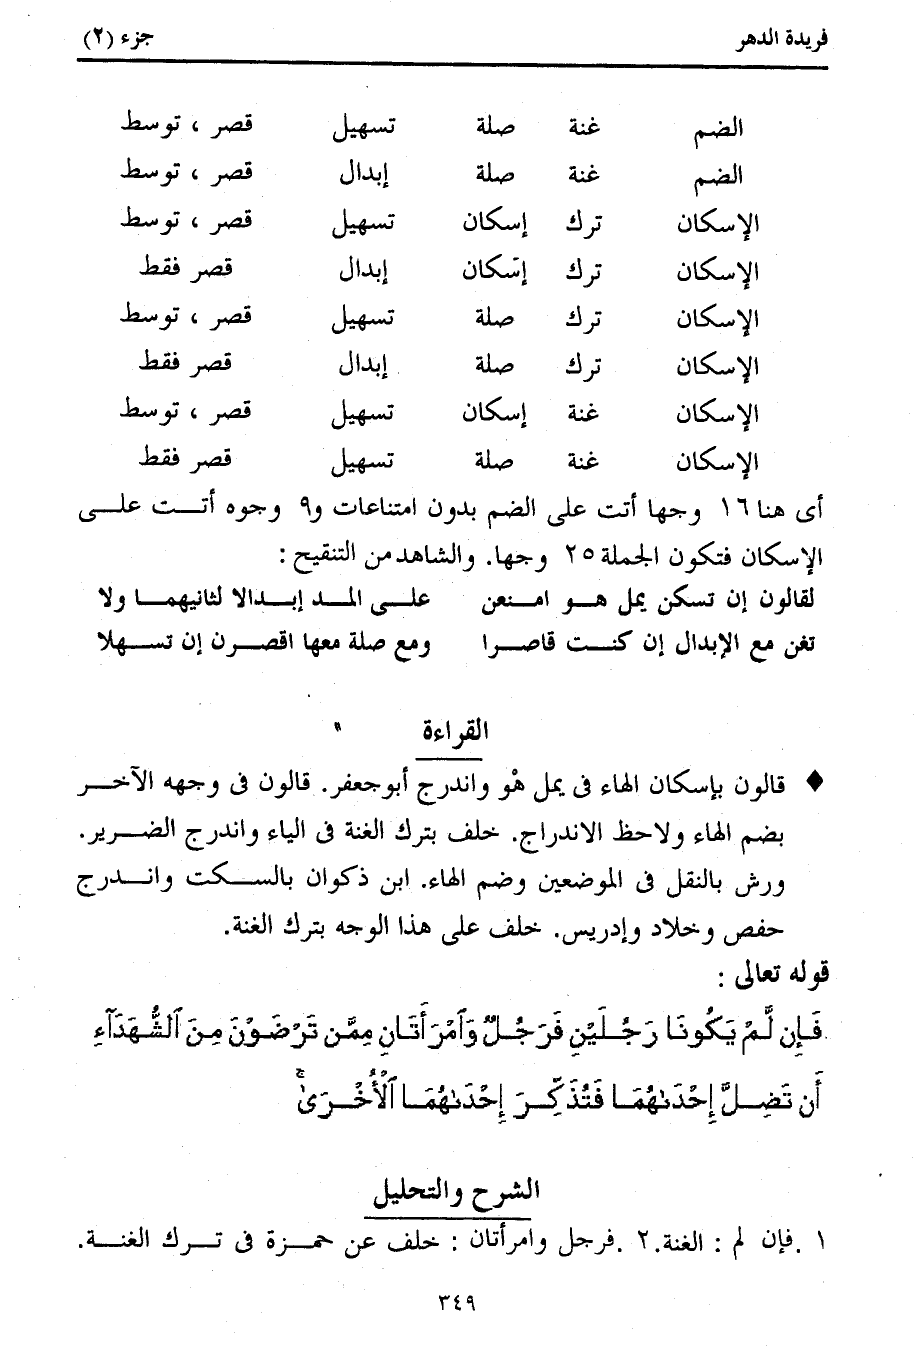 فريدة الدهر جزء (٢)
الضم غنة صلة تسهيل قصر ، توسط
الضم غنة صلة إبدال قصر ، توسط
الإسكان ترك إسكان تسهيل قصر ، توسط
الإسكان ترك إسكان إبدال قصر فقط
الإسكان ترك صلة تسهيل قصر ، توسط
الإسكان ترك صلة إبدال قصر فقط
الإسكان غنة إسكان تسهيل قصر ، توسط
الإسكان غنة صلة تسهيل قصر فقط
أى هنا ١٦ وجها أتت على الضم بدون امتناعات و٩ وجوه أتــت علــى
الإسكان فتكون الجملة ٢٥ وجها. والشاهد من التنقيح :
لقالون إن تسكن يمل هــو امــنعن علــى المــد إبــدالا لثانيهمــا ولا
تغن مع الإبدال إن كنــت قاصــرا ومع صلة معها اقصــرن إن تســهلا
القراءة
♦ قالون بإسكان الهاء فى يمل هْو واندرج أبوجعفر. قالون فى وجهه الآخــر
بضم الهاء ولاحظ الاندراج. خلف بترك الغنة فى الياء واندرج الضــرير.
ورش بالنقل فى الموضعين وضم الهاء. ابن ذكوان بالســكت وانــدرج
حفص وخلاد وإدريس. خلف على هذا الوجه بترك الغنة.
قوله تعالى :
فَإِن لَّمْ يَكُونَا رَجُلَيْنِ فَرَجُلٌ وَٱمْرَأَتَانِ مِمَّن تَرْضَوْنَ مِنَ ٱلشُّهَدَآءِ
أَن تَضِلَّ إِحْدَىٰهُمَا فَتُذَكِّرَ إِحْدَىٰهُمَا ٱلْأُخْرَىٰ ۚ
الشرح والتحليل
١ .فإن لم : الغنة.٢ .فرجل وامرأتان : خلف عن حمــزة فى تــرك الغنــة.
٣٤٩